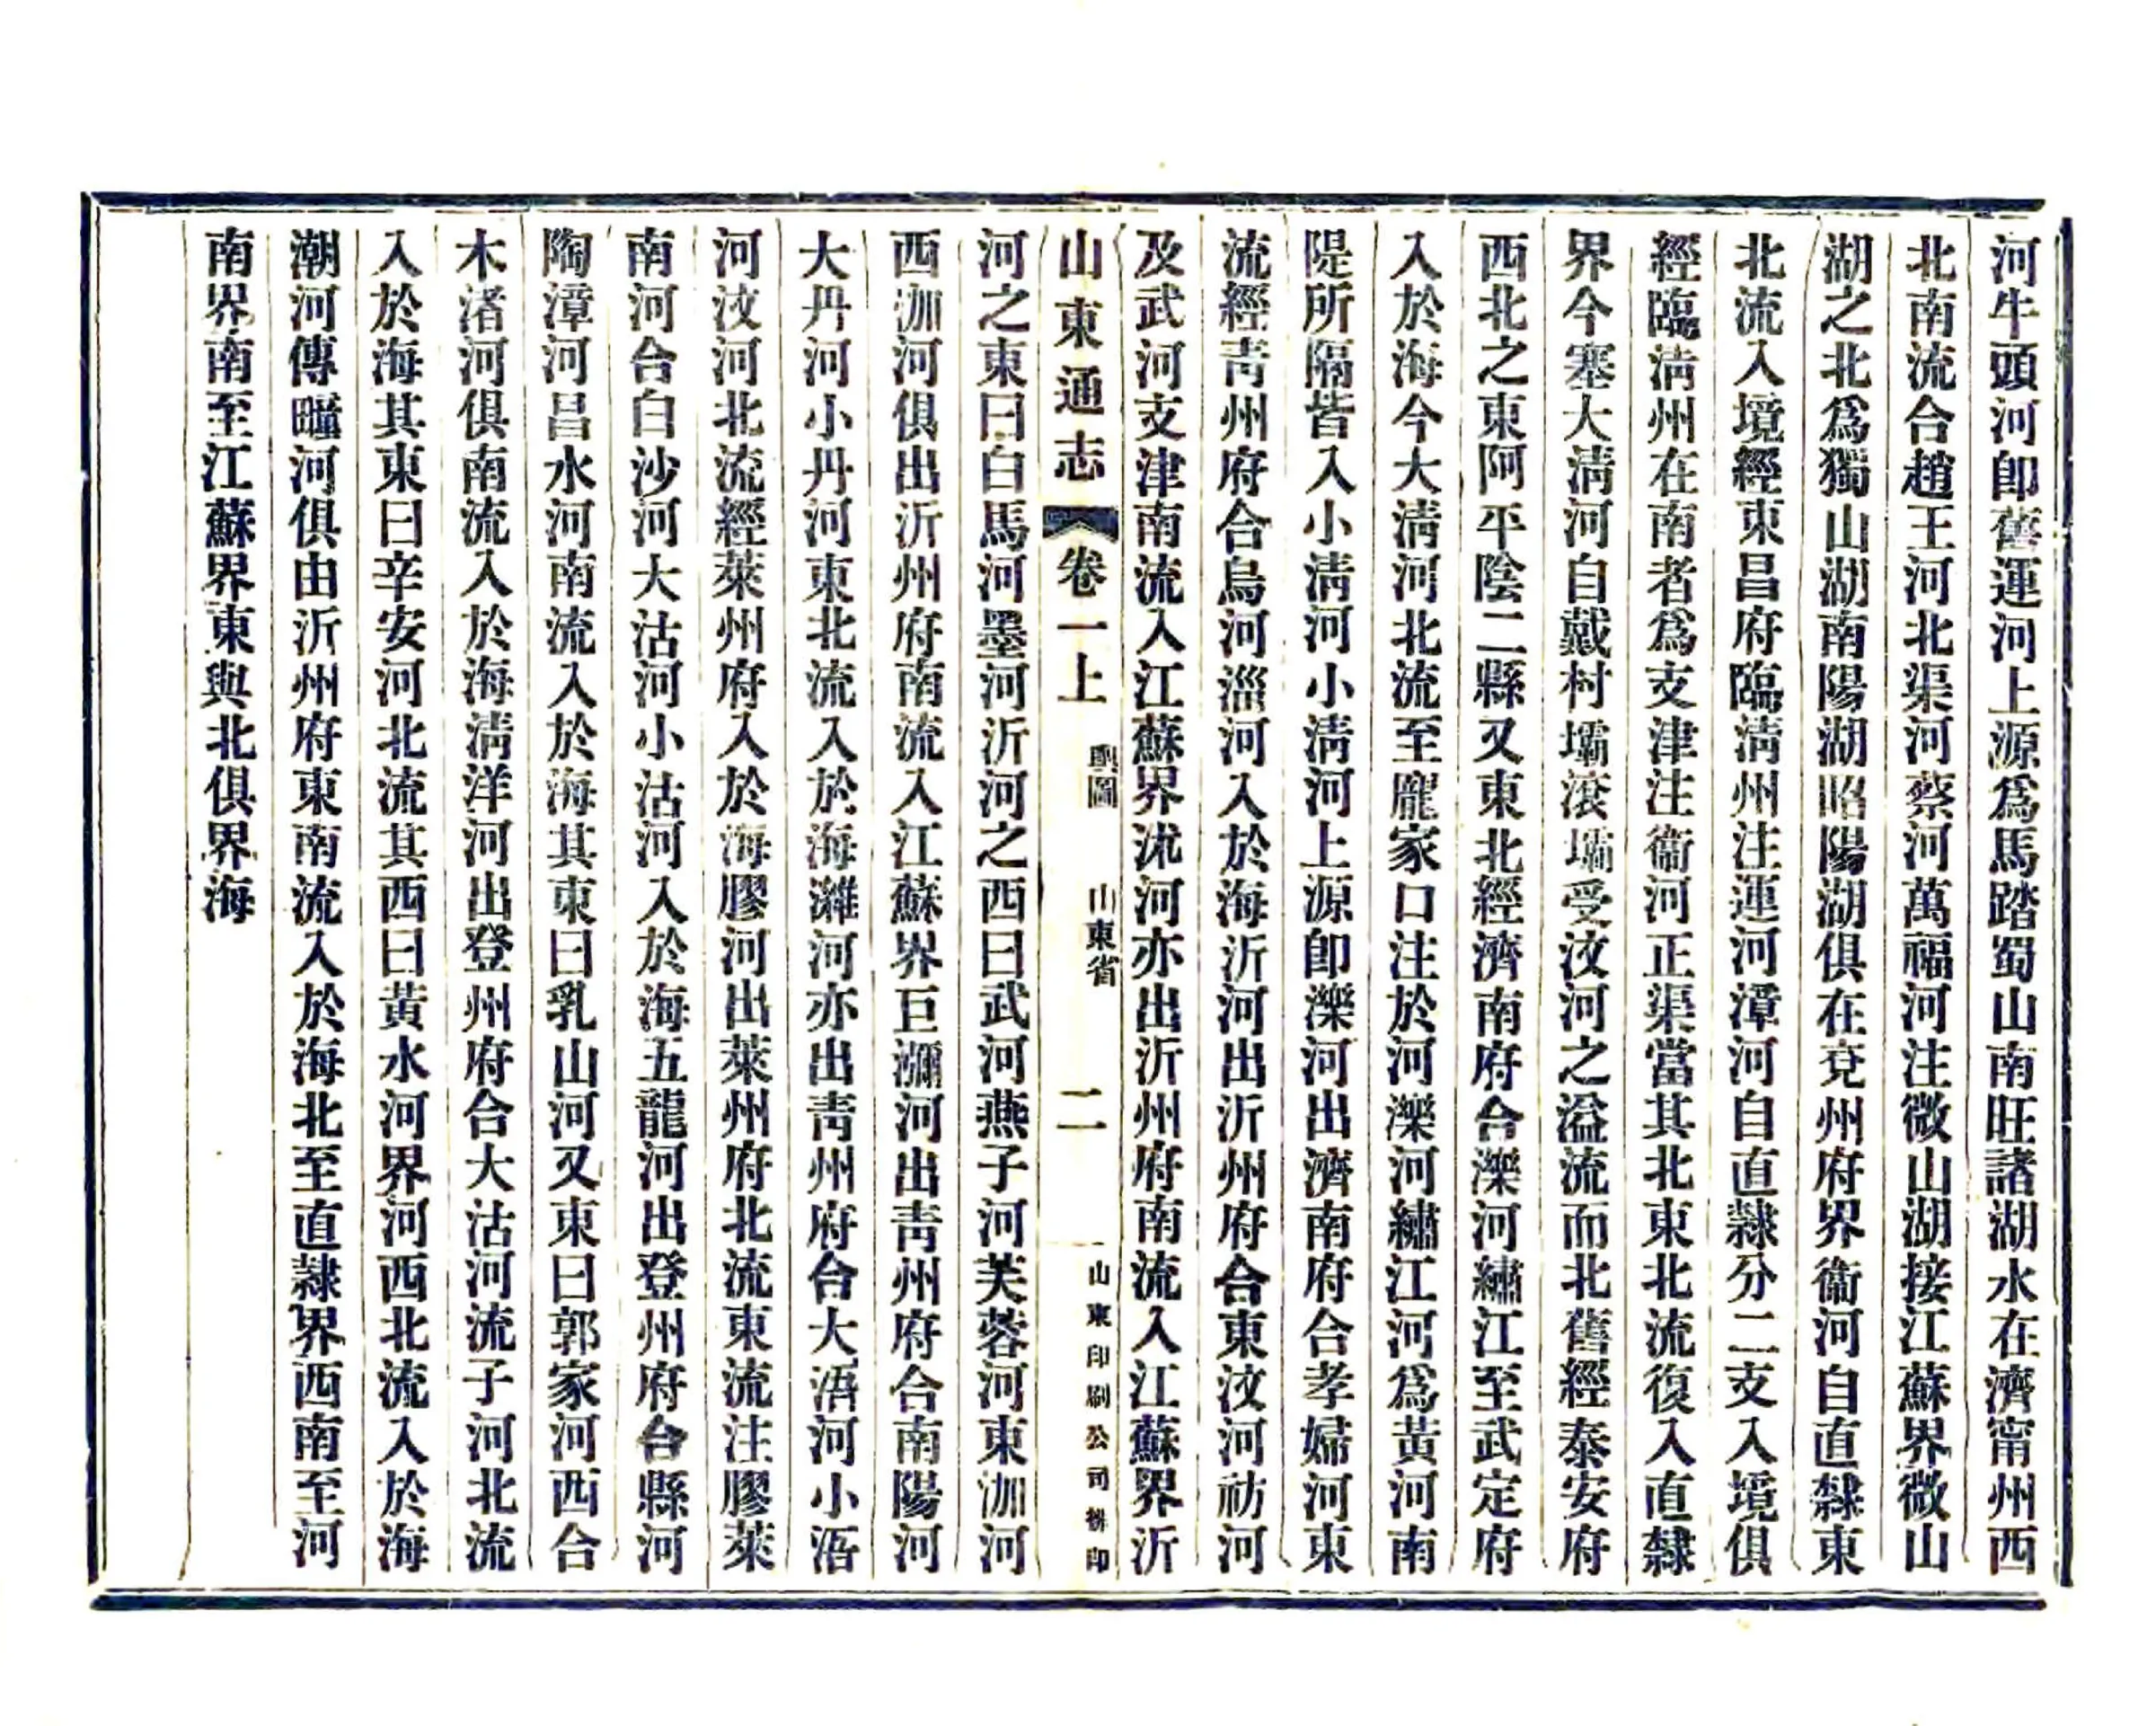 河牛頭河卽舊運河上源爲馬踏蜀山南旺諸湖水在濟甯州西
北南流合趙王河北渠河蔡河萬福河注微山湖接江蘇界微山
湖之北爲獨山湖南陽湖昭陽湖俱在兗州府界衞河自直隸東
北流入境經東昌府臨淸州注運河漳河自直隸分二支入境俱
經臨淸州在南者爲支津注衞河正渠當其北東北流復入直隸
界今塞大淸河自戴村壩滾壩受汶河之溢流而北舊經泰安府
西北之東阿平陰二縣又東北經濟南府合濼河繡江至武定府
入於海今大淸河北流至龐家口注於河濼河繡江河爲黃河南
隄所隔皆入小淸河小淸河上源卽濼河出濟南府合孝婦河東
流經靑州府合烏河淄河入於海沂河出沂州府合東汶河祊河
及武河支津南流入江蘇界沭河亦出沂州府南流入江蘇界沂
山東通志
卷一上
輿圖
山東省
二
山東印刷公司排印
河之東曰白馬河墨河沂河之西曰武河燕子河芙蓉河東泇河
西泇河俱出沂州府南流入江蘇界巨瀰河出靑州府合南陽河
大丹河小丹河東北流入於海濰河亦出靑州府合大浯河小浯
河汶河北流經萊州府入於海膠河出萊州府北流東流注膠萊
南河合白沙河大沽河小沽河入於海五龍河出登州府合縣河
陶漳河昌水河南流入於海其東曰乳山河又東曰郭家河西合
木渚河俱南流入於海淸洋河出登州府合大沽河流子河北流
入於海其東曰辛安河北流其西曰黃水河界河西北流入於海
潮河傳疃河俱由沂州府東南流入於海北至直隸界西南至河
南界南至江蘇界東與北俱界海